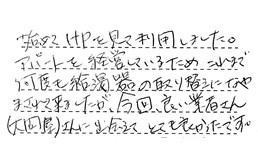 始めてHPを見て利用しました。
アパートを経営しているため、これまで
何度も給湯器の取り替えになや
まされて来ましたが、今回良い業者さん
(大四国)さんに出会えて とても良かったです。